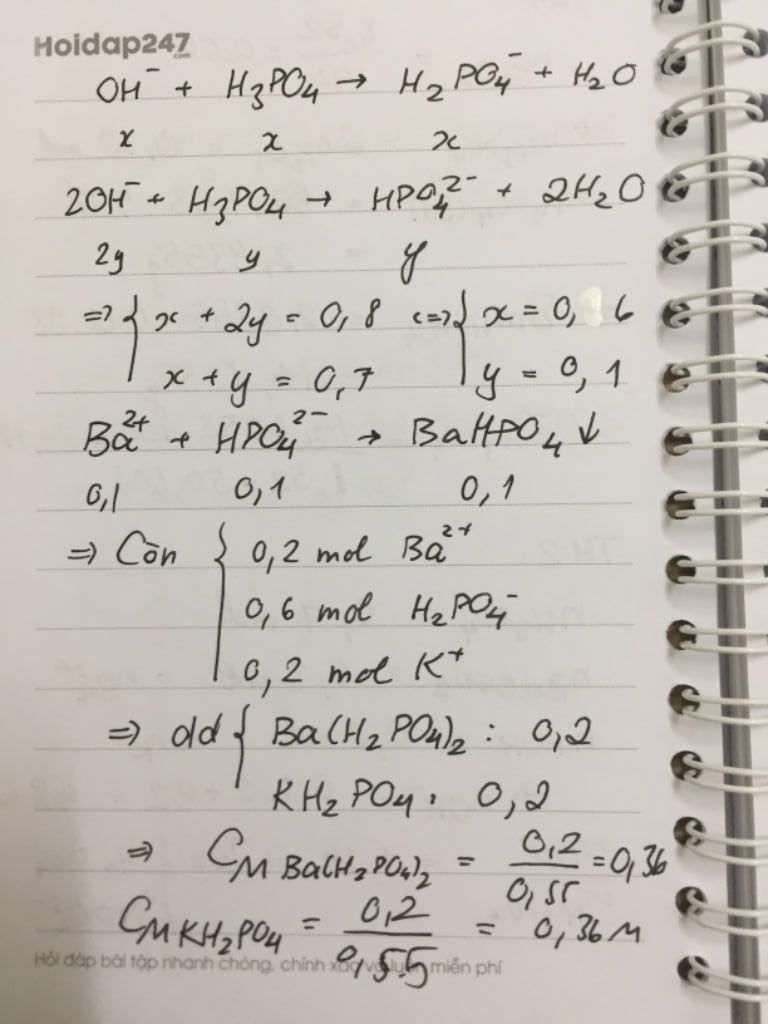 Hoidap247.com
OH⁻ + H₃PO₄ → H₂PO₄⁻ + H₂O
x x x
2OH⁻ + H₃PO₄ → HPO₄²⁻ + 2H₂O
2y y y
=> { x + 2y = 0,8 <=> { x = 0,6
x + y = 0,7 y = 0,1
Ba²⁺ + HPO₄²⁻ → BaHPO₄↓
0,1 0,1 0,1
=> Còn { 0,2 mol Ba²⁺
0,6 mol H₂PO₄⁻
0,2 mol K⁺
=> dd { Ba(H₂PO₄)₂ : 0,2
KH₂PO₄ : 0,2
=> CM Ba(H₂PO₄)₂ = 0,2/0,55 = 0,36
CM KH₂PO₄ = 0,2/0,55 = 0,36M
Hỏi đáp bài tập nhanh chóng, chính xác và luôn miễn phí